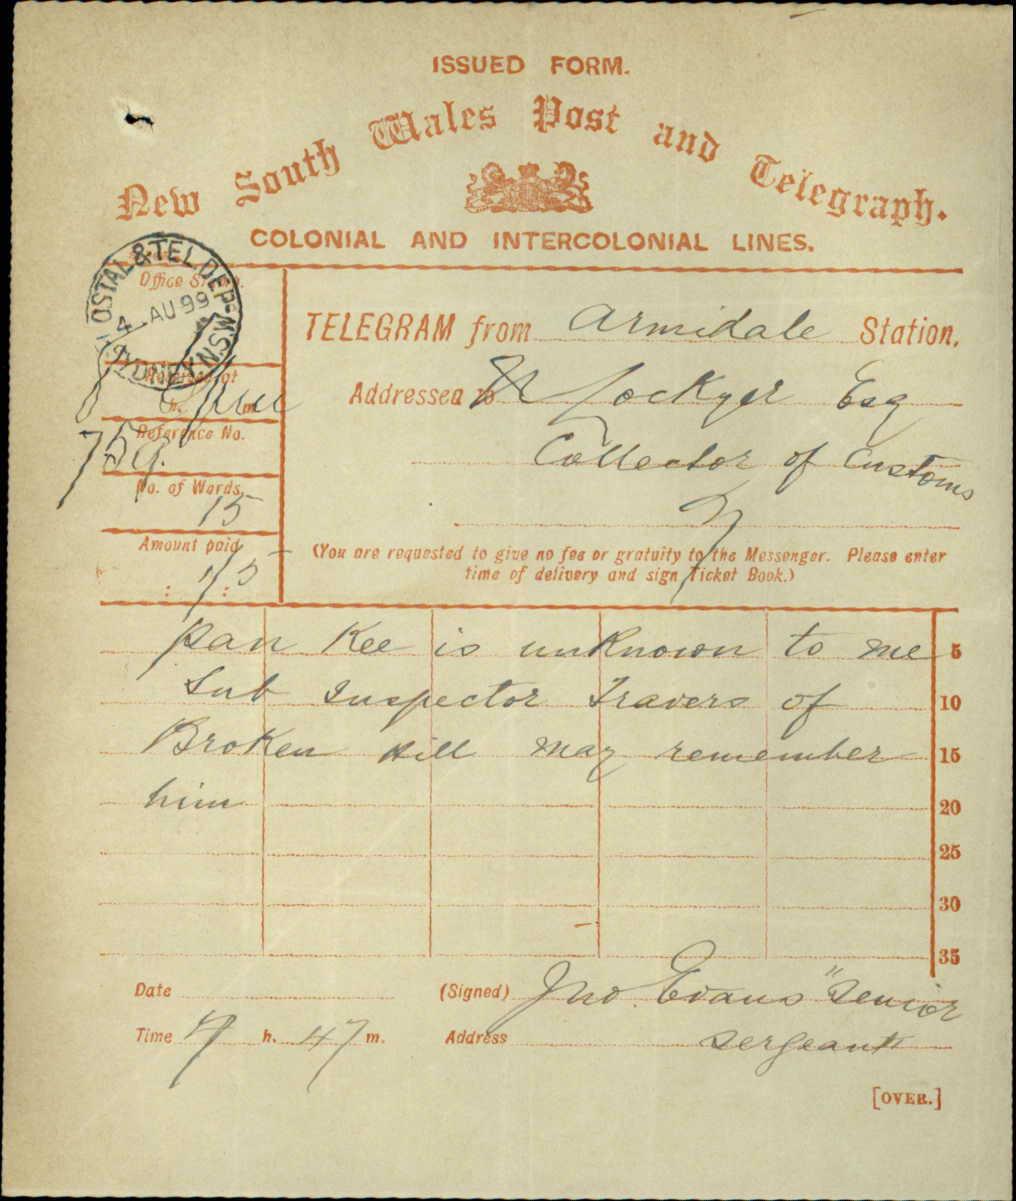 ISSUED FORM.
New South Wales Post and Telegraph.
COLONIAL AND INTERCOLONIAL LINES.
POSTAL & TEL. DEP.
4 AU 99
SYDNEY N.S.W
Office
TELEGRAM from Armidale Station.
Addressed to N Lockyer Esq
Collector of Customs
Received at
8 pm
h. m.
Reference No.
759
No. of Words
15
Amount paid
: 1/5 :
(You are requested to give no fee or gratuity to the Messenger. Please enter
time of delivery and sign Ticket Book.)
Pan Kee is unknown to me 5
Sub Inspector Travers of 10
Broken Hill may remember 15
him 20
25
30
35
Date
(Signed) Jno. Evans "Senior
Time 7 h. 47 m.
Address Sergeant
[OVER.]